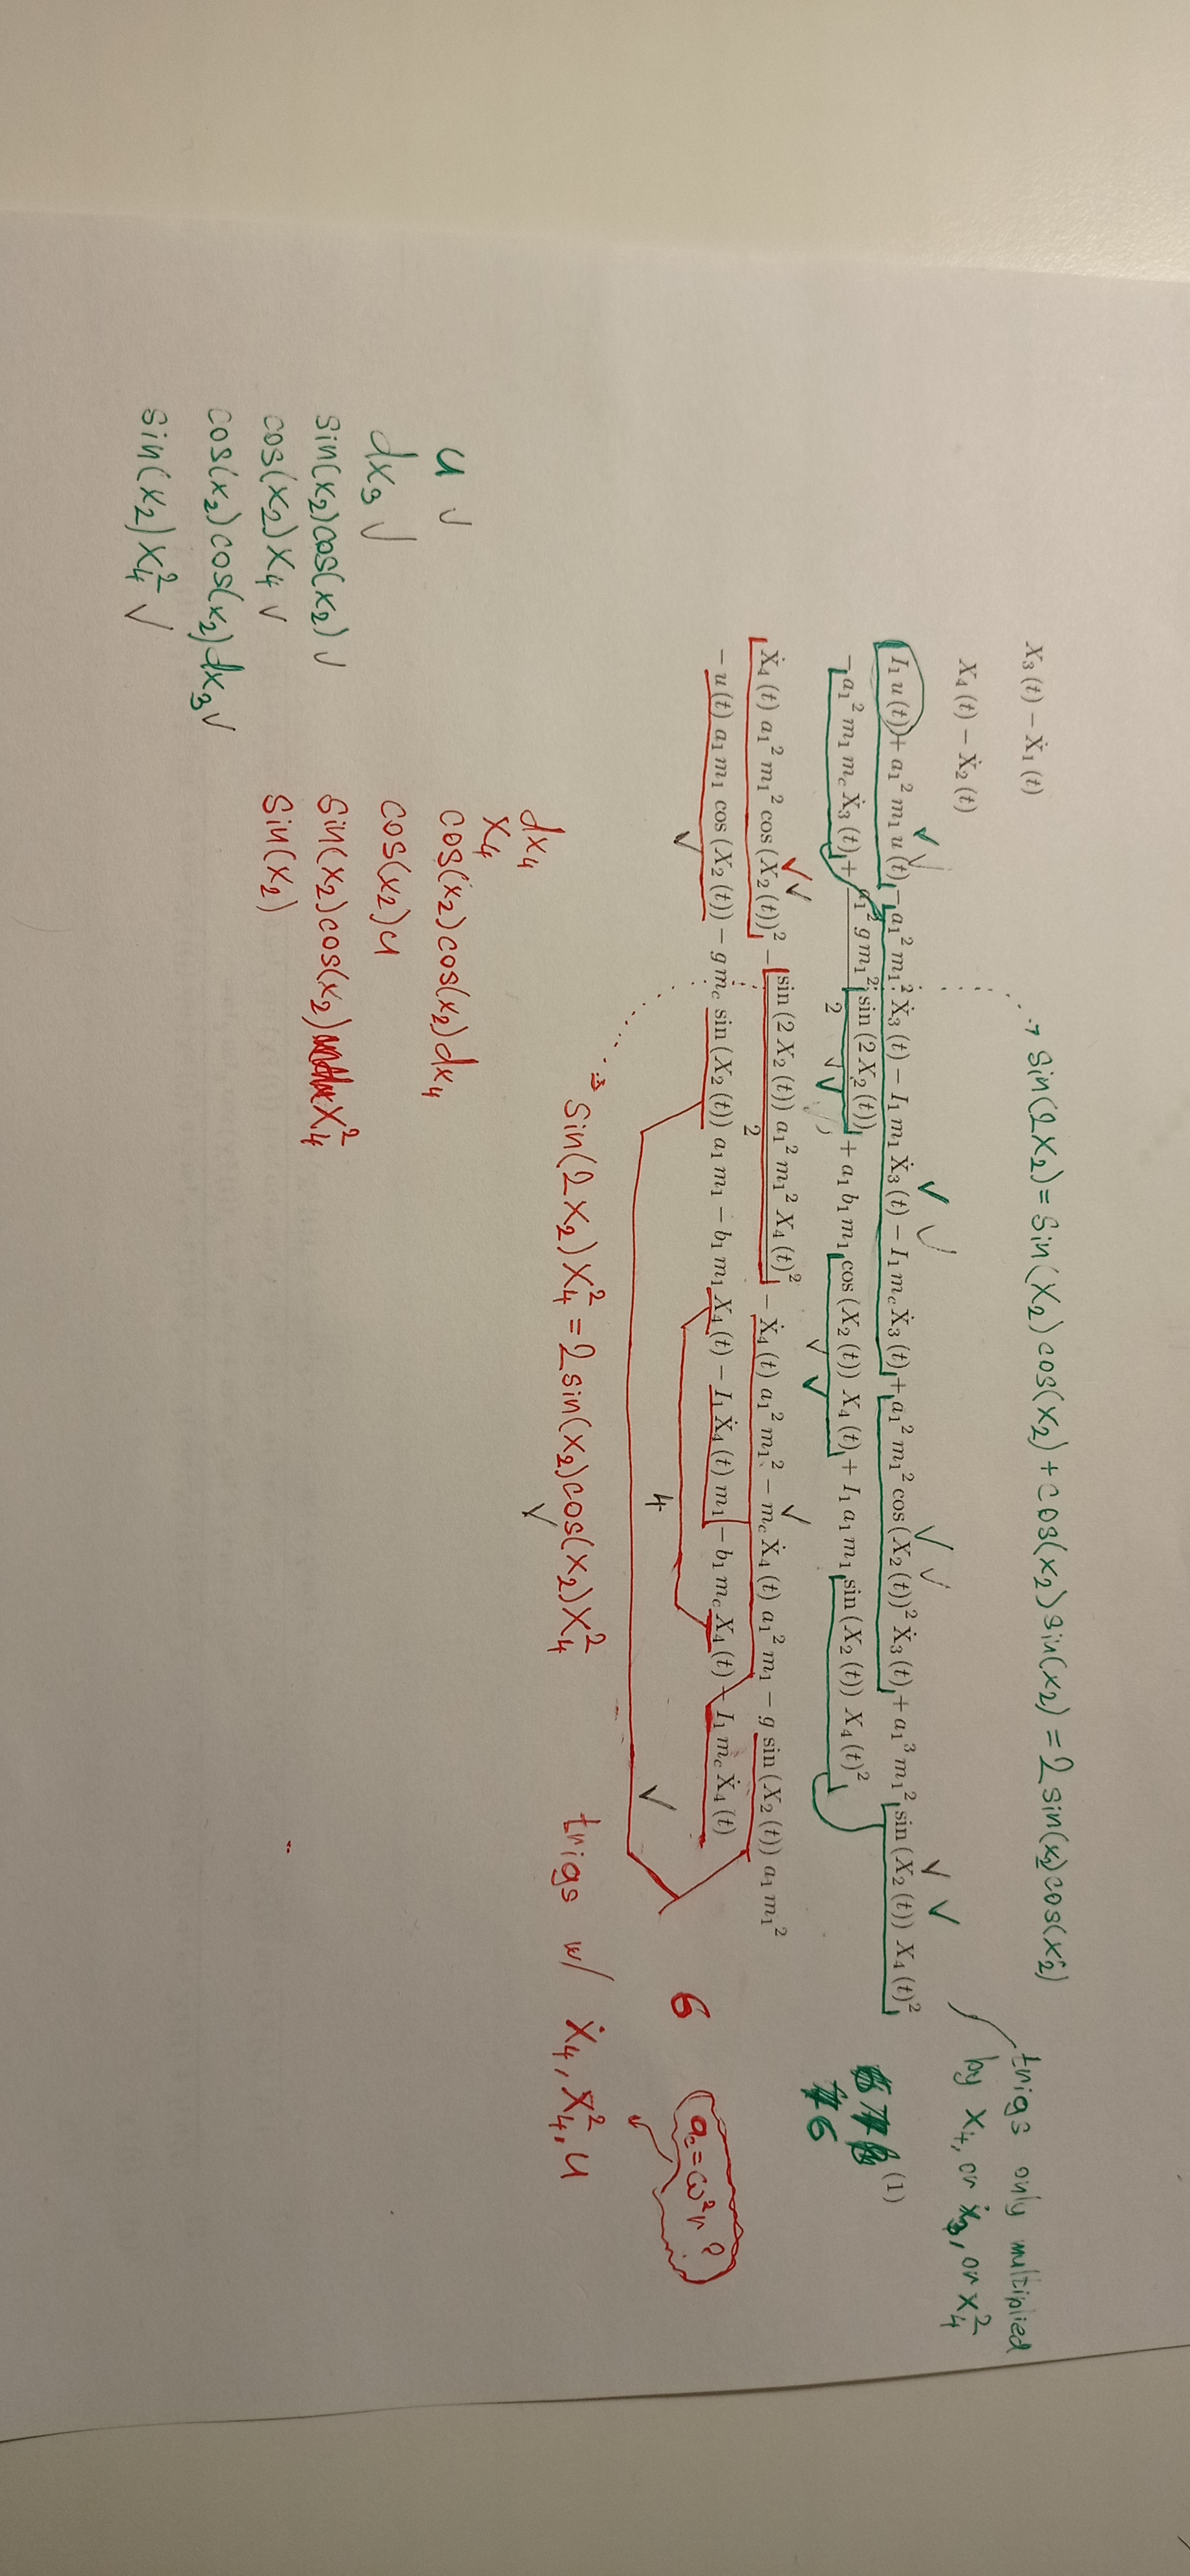 sin(2x₂) = sin(x₂) cos(x₂) + cos(x₂) sin(x₂) = 2 sin(x₂) cos(x₂)
X₃ (t) − Ẋ₁ (t)
trigs only multiplied
by x₄, or ẋ₃, or x₄²
X₄ (t) − Ẋ₂ (t)
I₁ u (t) + a₁² m₁ u (t) − a₁² m₁² Ẋ₃ (t) − I₁ m₁ Ẋ₃ (t) − I₁ m_c Ẋ₃ (t) + a₁² m₁² cos (X₂ (t))² Ẋ₃ (t) + a₁³ m₁² sin (X₂ (t)) X₄ (t)²
(1)
− a₁² m₁ m_c Ẋ₃ (t) + a₁² g m₁² sin (2 X₂ (t)) / 2 + a₁ b₁ m₁ cos (X₂ (t)) X₄ (t) + I₁ a₁ m₁ sin (X₂ (t)) X₄ (t)²
6
Ẋ₄ (t) a₁² m₁² cos (X₂ (t))² − sin (2 X₂ (t)) a₁² m₁² X₄ (t)² / 2 − Ẋ₄ (t) a₁² m₁² − m_c Ẋ₄ (t) a₁² m₁ − g sin (X₂ (t)) a₁ m₁²
− u (t) a₁ m₁ cos (X₂ (t)) − g m_c sin (X₂ (t)) a₁ m₁ − b₁ m₁ X₄ (t) − I₁ Ẋ₄ (t) m₁ − b₁ m_c X₄ (t) − I₁ m_c Ẋ₄ (t)
6
a_c = ω²r ?
4
sin(2x₂) x₄² = 2 sin(x₂) cos(x₂) x₄²
trigs w/ ẋ₄, x₄², u
dx₄
x₄
cos(x₂) cos(x₂) dx₄
cos(x₂) u
sin(x₂) cos(x₂) x₄²
sin(x₂)
u ✓
dx₃ ✓
sin(x₂) cos(x₂) ✓
cos(x₂) x₄ ✓
cos(x₂) cos(x₂) dx₃ ✓
sin(x₂) x₄² ✓